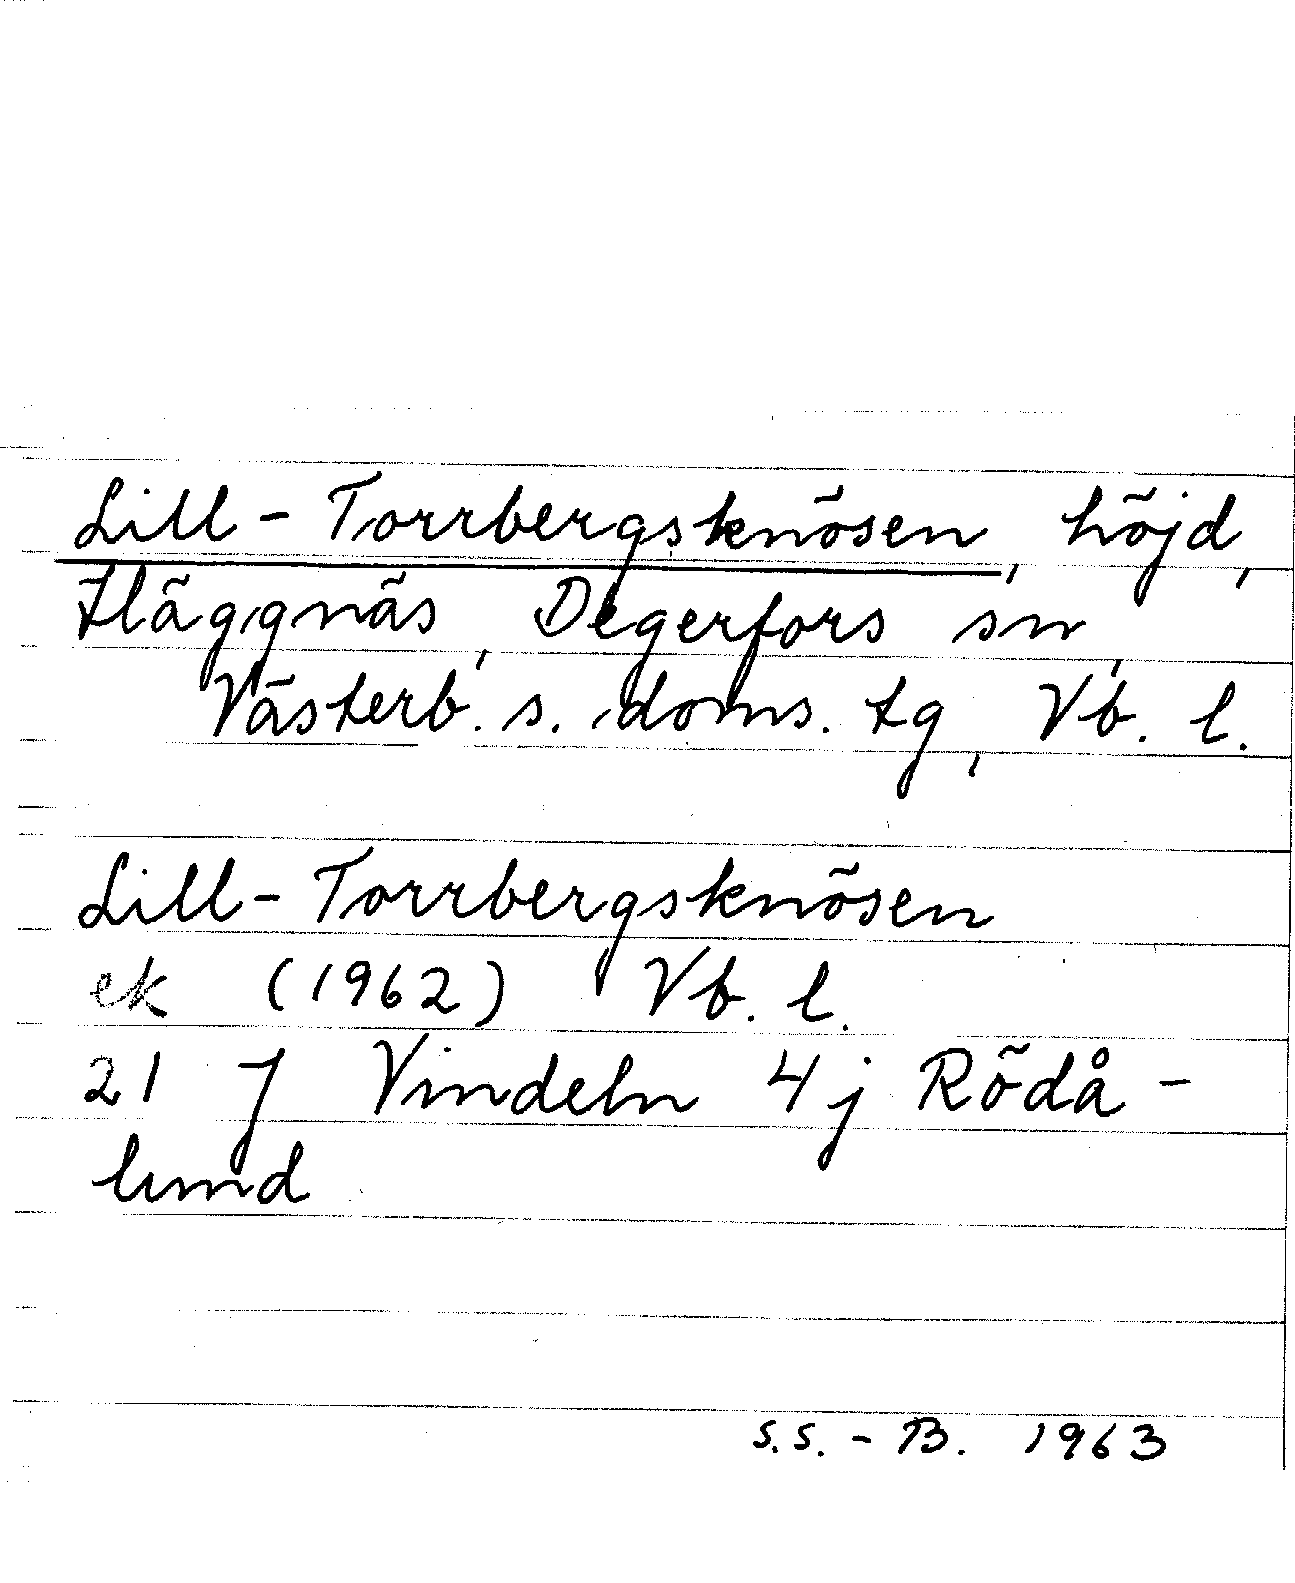 Lill-Torrbergsknösen, höjd,
Häggnäs, Degerfors sn,
Västerb. s. doms. tg, Vb. l.
Lill-Torrbergsknösen
ek (1962) Vb. l.
21 J Vindeln 4j Rödå-
lund
S.S.-B. 1963